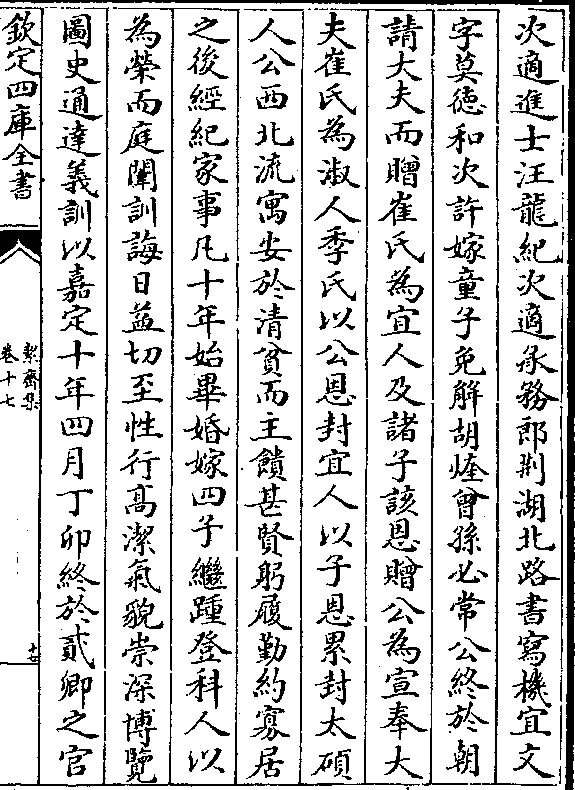 次適進士汪龍紀次適承務郎荆湖北路書寫機宜文
字莫徳和次許嫁童子免解胡煃曾孫必常公終於朝
請大夫而贈崔氏為宜人及諸子該恩贈公為宣奉大
夫崔氏為淑人季氏以公恩封宜人以子恩累封太碩
人公西北流寓安於清貧而主饋甚賢躬履勤約寡居
之後經紀家事凡十年始畢婚嫁四子繼踵登科人以
為榮而庭闈訓誨日益切至性行髙潔氣貌崇深博覽
圖史通達義訓以嘉定十年四月丁卯終於貳卿之官
欽定四庫全書
絜齋集
卷十七
十七